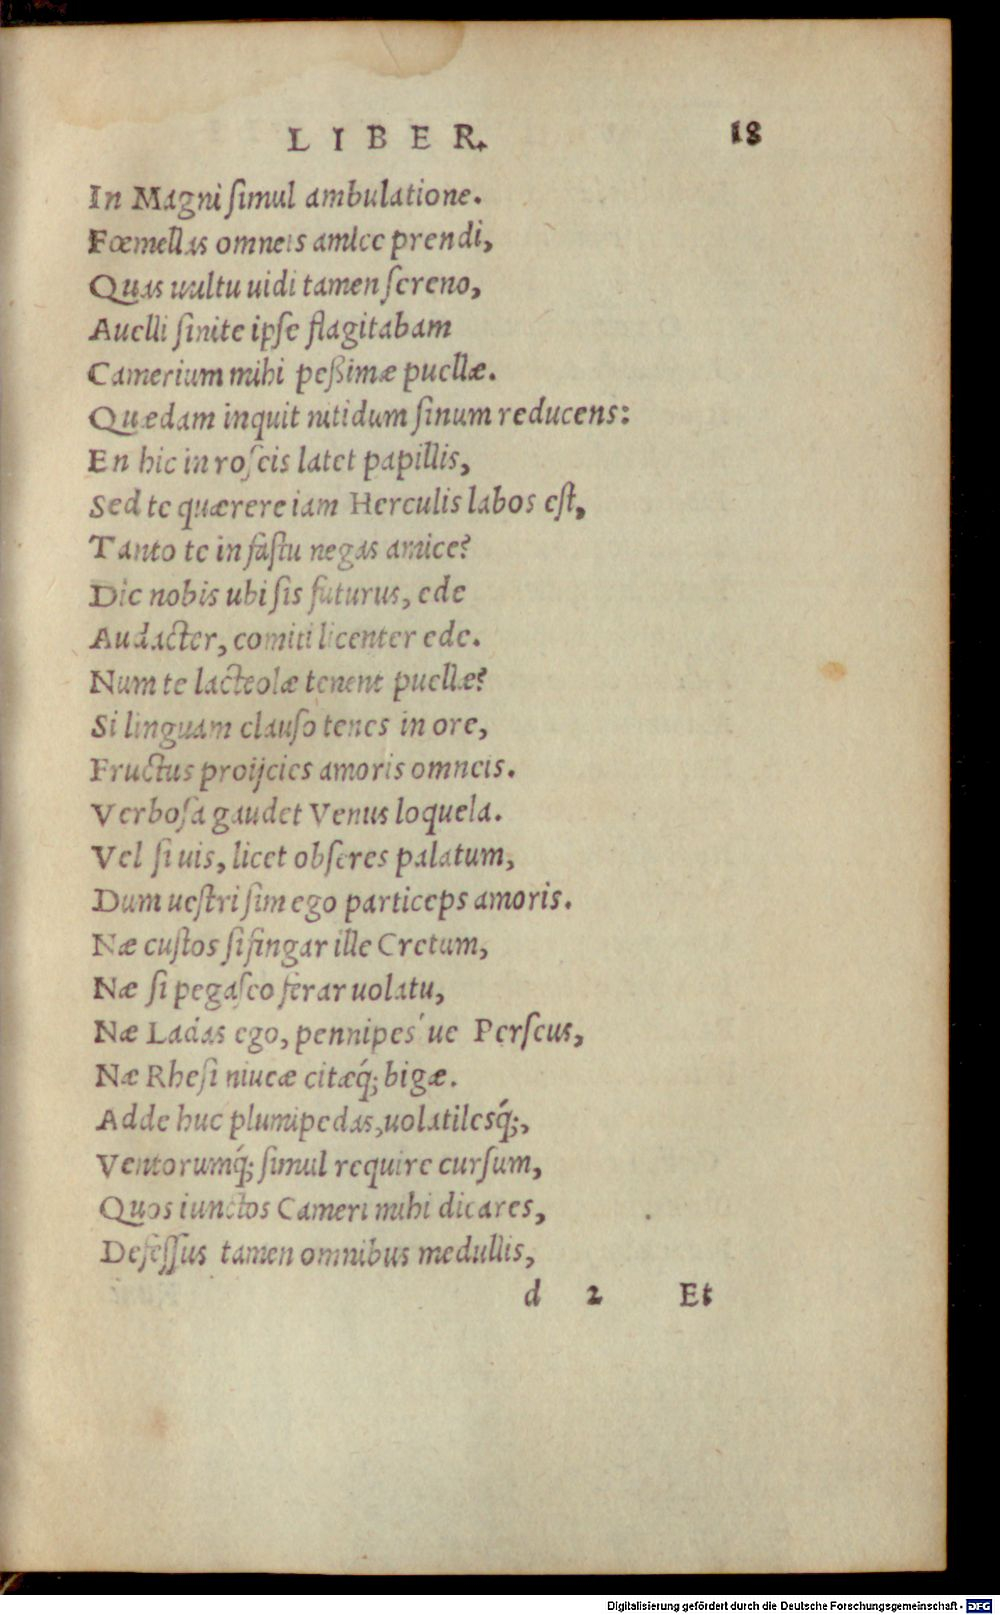 LIBER. 18
In Magni ſimul ambulatione.
Fœmellas omneis amice prendi,
Quas uultu uidi tamen ſereno,
Auelli ſinite ipſe flagitabam
Camerium mihi peßimæ puellæ.
Quædam inquit nitidum ſinum reducens:
En hic in roſeis latet papillis,
Sed te quærere iam Herculis labos eſt,
Tanto te in faſtu negas amice?
Dic nobis ubi ſis futurus, ede
Audacter, comiti licenter ede.
Num te lacteolæ tenent puellæ?
Si linguam clauſo tenes in ore,
Fructus proijcies amoris omneis.
Verboſa gaudet Venus loquela.
Vel ſi uis, licet obſeres palatum,
Dum ueſtri ſim ego particeps amoris.
Næ cuſtos ſi fingar ille Cretum,
Næ ſi pegaſeo ferar uolatu,
Næ Ladas ego, pennipes' ue Perſeus,
Næ Rheſi niueæ citæq́; bigæ.
Adde huc plumipedas,uolatilesq́;,
Ventorumq́; ſimul require curſum,
Quos iunctos Cameri mihi dicares,
Defeſſus tamen omnibus medullis,
d 2 Et
Digitalisierung gefördert durch die Deutsche Forschungsgemeinschaft - DFG